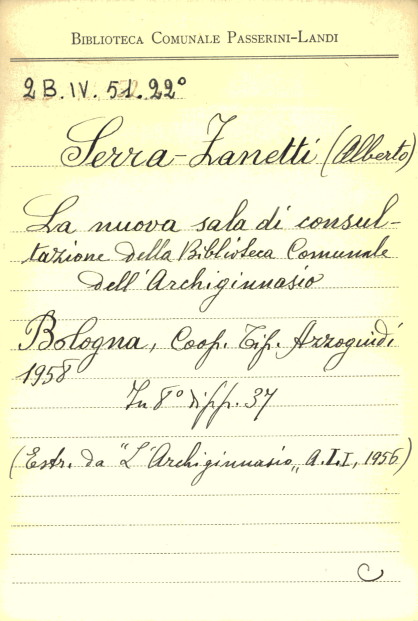 BIBLIOTECA COMUNALE PASSERINI-LANDI
2 B. IV. 51. 22°
Serra-Zanetti (Alberto)
La nuova sala di consul-
tazione della Biblioteca Comunale
dell'Archiginnasio
Bologna, Coop. Tip. Azzoguidi
1958
In 8° di pp. 37
(Estr. da "L'Archiginnasio", A. L I, 1956)
C